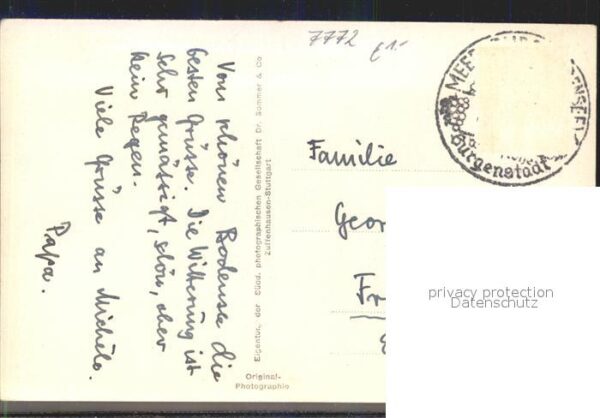 Vom schönen Bodensee die
besten Grüsse. Die Witterung ist
sehr gemässigt, schön, aber
kein Regen.
Viele Grüsse an Michèle.
Papa.
Eigentum der Südd. photographischen Gesellschaft Dr. Sommer & Co
Zuffenhausen-Stuttgart
Original-
Photographie
7772
£1.-
MEE
ENSEE
Burgenstadt
Familie
Geor
Fr
privacy protection
Datenschutz